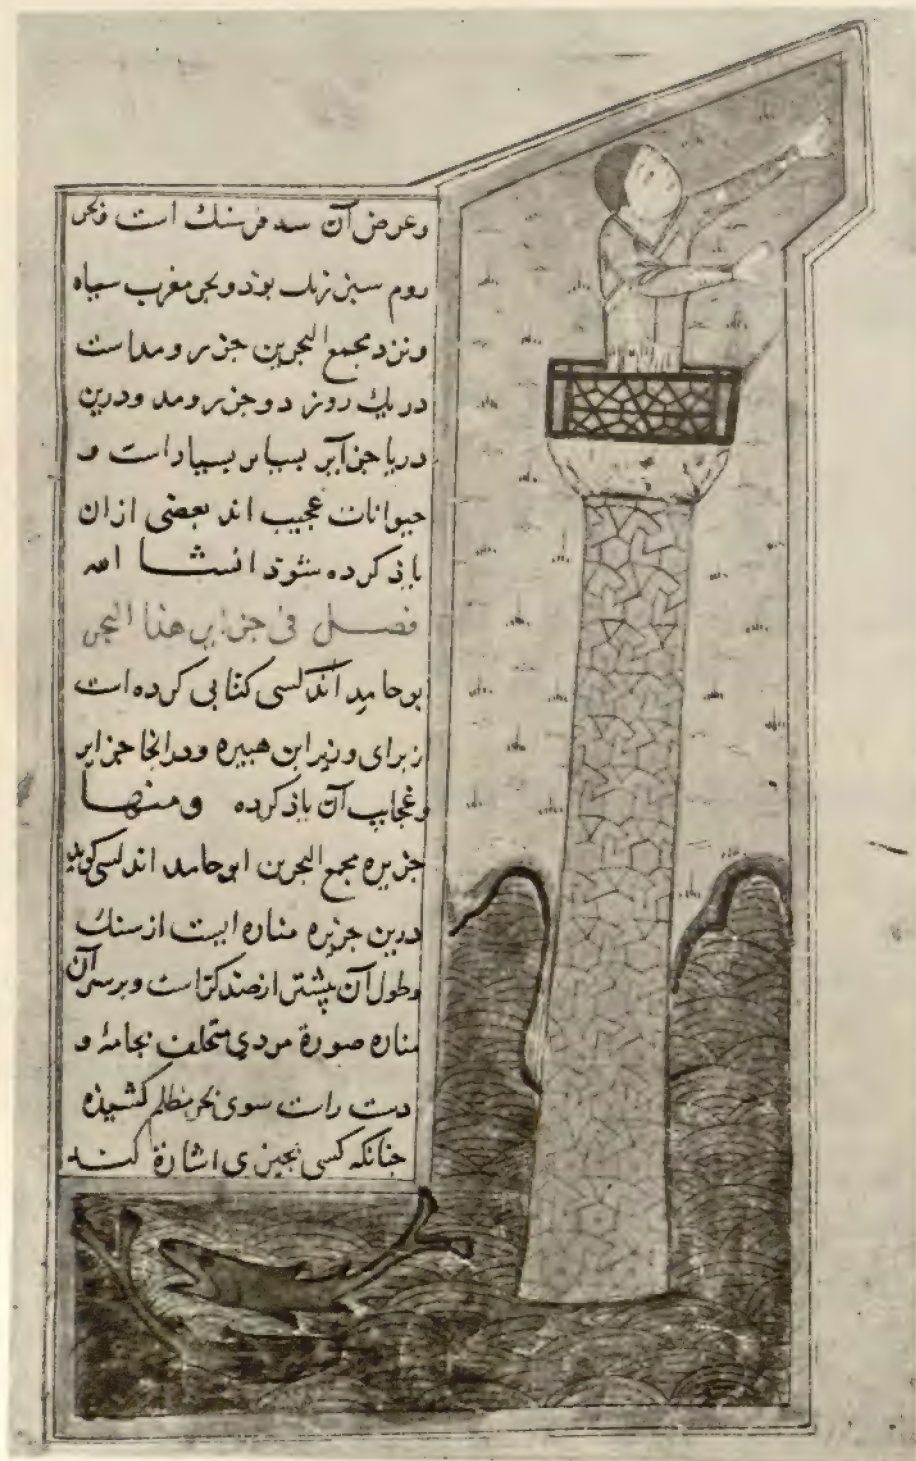 وعرض آن سه فرسنك است وبحر
روم سبز رنك بوذ وبحر مغرب سياه
ونزد مجمع البحرين جزر ومد است
در يك روز دو جزر ومد ودرين
دريا جزاير بسيار بسيار است و
حيوانات عجيب اند بعضى ازان
ياذ كرده شوذ انشا الله
فصل فى جزاير هذا البحر
بوحامد اندلسى كتابى كرده است
زبراى وزير ابن هبيره ودرانجا جزاير
وعجايب آن ياذ كرده ومنها
جزيره مجمع البحرين ابوحامد اندلسى كويد
درين جزيره مناره ايست از سنك
وطول آن بيشتر از صد كز است وبر سر آن
مناره صورة مردى متحلف بجامه و
دست راست سوى بحر مظلم كشيذه
جنانكه كسى بجيزى اشارة كند